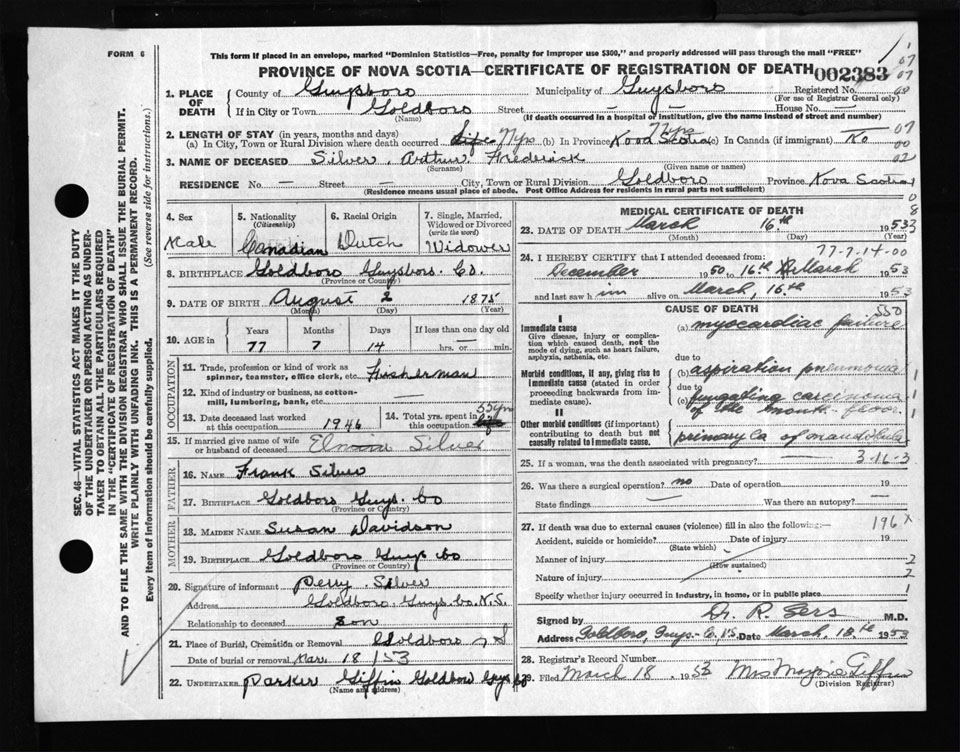 FORM 6
This form if placed in an envelope, marked "Dominion Statistics—Free, penalty for improper use $300," and properly addressed will pass through the mail "FREE"
PROVINCE OF NOVA SCOTIA—CERTIFICATE OF REGISTRATION OF DEATH
002383
1. PLACE OF DEATH County of Guysboro Municipality of Guysboro Registered No. (For use of Registrar General only)
If in City or Town Goldboro Street — House No. —
(Name) (If death occurred in a hospital or institution, give the name instead of street and number)
2. LENGTH OF STAY (in years, months and days)
(a) In City, Town or Rural Division where death occurred Life 77 yrs (b) In Province 77 yrs Nova Scotia (c) In Canada (if immigrant) No
3. NAME OF DECEASED Silver, Arthur Frederick
(Surname) (Given name or names)
RESIDENCE No. — Street — City, Town or Rural Division Goldboro Province Nova Scotia
(Residence means usual place of abode. Post Office Address for residents in rural parts not sufficient)
4. Sex Male
5. Nationality (Citizenship) Canadian
6. Racial Origin Dutch
7. Single, Married, Widowed or Divorced (write the word) Widower
8. BIRTHPLACE Goldboro Guysboro. Co.
(Province or Country)
9. DATE OF BIRTH August 2 1875
(Month) (Day) (Year)
10. AGE in Years 77 Months 7 Days 14 If less than one day old hrs. or — min.
OCCUPATION
11. Trade, profession or kind of work as spinner, teamster, office clerk, etc. Fisherman
12. Kind of industry or business, as cotton-mill, lumbering, bank, etc. —
13. Date deceased last worked at this occupation 1946
14. Total yrs. spent in this occupation 55 yrs life
15. If married give name of wife or husband of deceased Silver
FATHER
16. NAME Frank Silver
17. BIRTHPLACE Goldboro Guys. Co
MOTHER
18. MAIDEN NAME Susan Davidson
19. BIRTHPLACE Goldboro Guys Co
(Province or Country)
20. Signature of informant Perry Silver
Address Goldboro Guys Co. N.S.
Relationship to deceased Son
21. Place of Burial, Cremation or Removal Goldboro N S
Date of burial or removal Mar. 18/53
22. UNDERTAKER Parker Giffin Goldboro Guys Co
(Name and address)
MEDICAL CERTIFICATE OF DEATH
23. DATE OF DEATH March 16th 1953
(Month) (Day) (Year)
77-7-14-00
24. I HEREBY CERTIFY that I attended deceased from:
December 1950 to 16th March 1953
and last saw him alive on March, 16th 1953
CAUSE OF DEATH
550
I
Immediate cause
Give disease, injury or complication which caused death, not the mode of dying, such as heart failure, asphyxia, asthenia, etc.
(a) myocardiac failure
due to
Morbid conditions, if any, giving rise to immediate cause (stated in order proceeding backwards from immediate cause).
(b) aspiration pneumonia
(due to
(c) fungating carcinoma of the mouth - floor.
II
Other morbid conditions (if important) contributing to death but not causally related to immediate cause.
primary Ca of mandibula
25. If a woman, was the death associated with pregnancy? — 3-16-3
26. Was there a surgical operation? no Date of operation — 19
State findings — Was there an autopsy? —
27. If death was due to external causes (violence) fill in also the following:—
196X
Accident, suicide or homicide? Date of injury 19
(State which)
Manner of injury
(How sustained)
Nature of injury
Specify whether injury occurred in industry, in home, or in public place
Signed by Dr. R. Sers M.D.
Address Goldboro, Guys.- Co. N.S. Date March, 18th 1953
28. Registrar's Record Number
29. Filed March 18 1953 Mrs Giffin
(Division Registrar)
SEC. 46—VITAL STATISTICS ACT MAKES IT THE DUTY
OF THE UNDERTAKER OR PERSON ACTING AS UNDER-
TAKER TO OBTAIN ALL THE PARTICULARS REQUIRED
IN THE "CERTIFICATE OF REGISTRATION OF DEATH"
AND TO FILE THE SAME WITH THE DIVISION REGISTRAR WHO SHALL ISSUE THE BURIAL PERMIT.
WRITE PLAINLY WITH UNFADING INK. THIS IS A PERMANENT RECORD.
Every item of information should be carefully supplied. (See reverse side for instructions.)